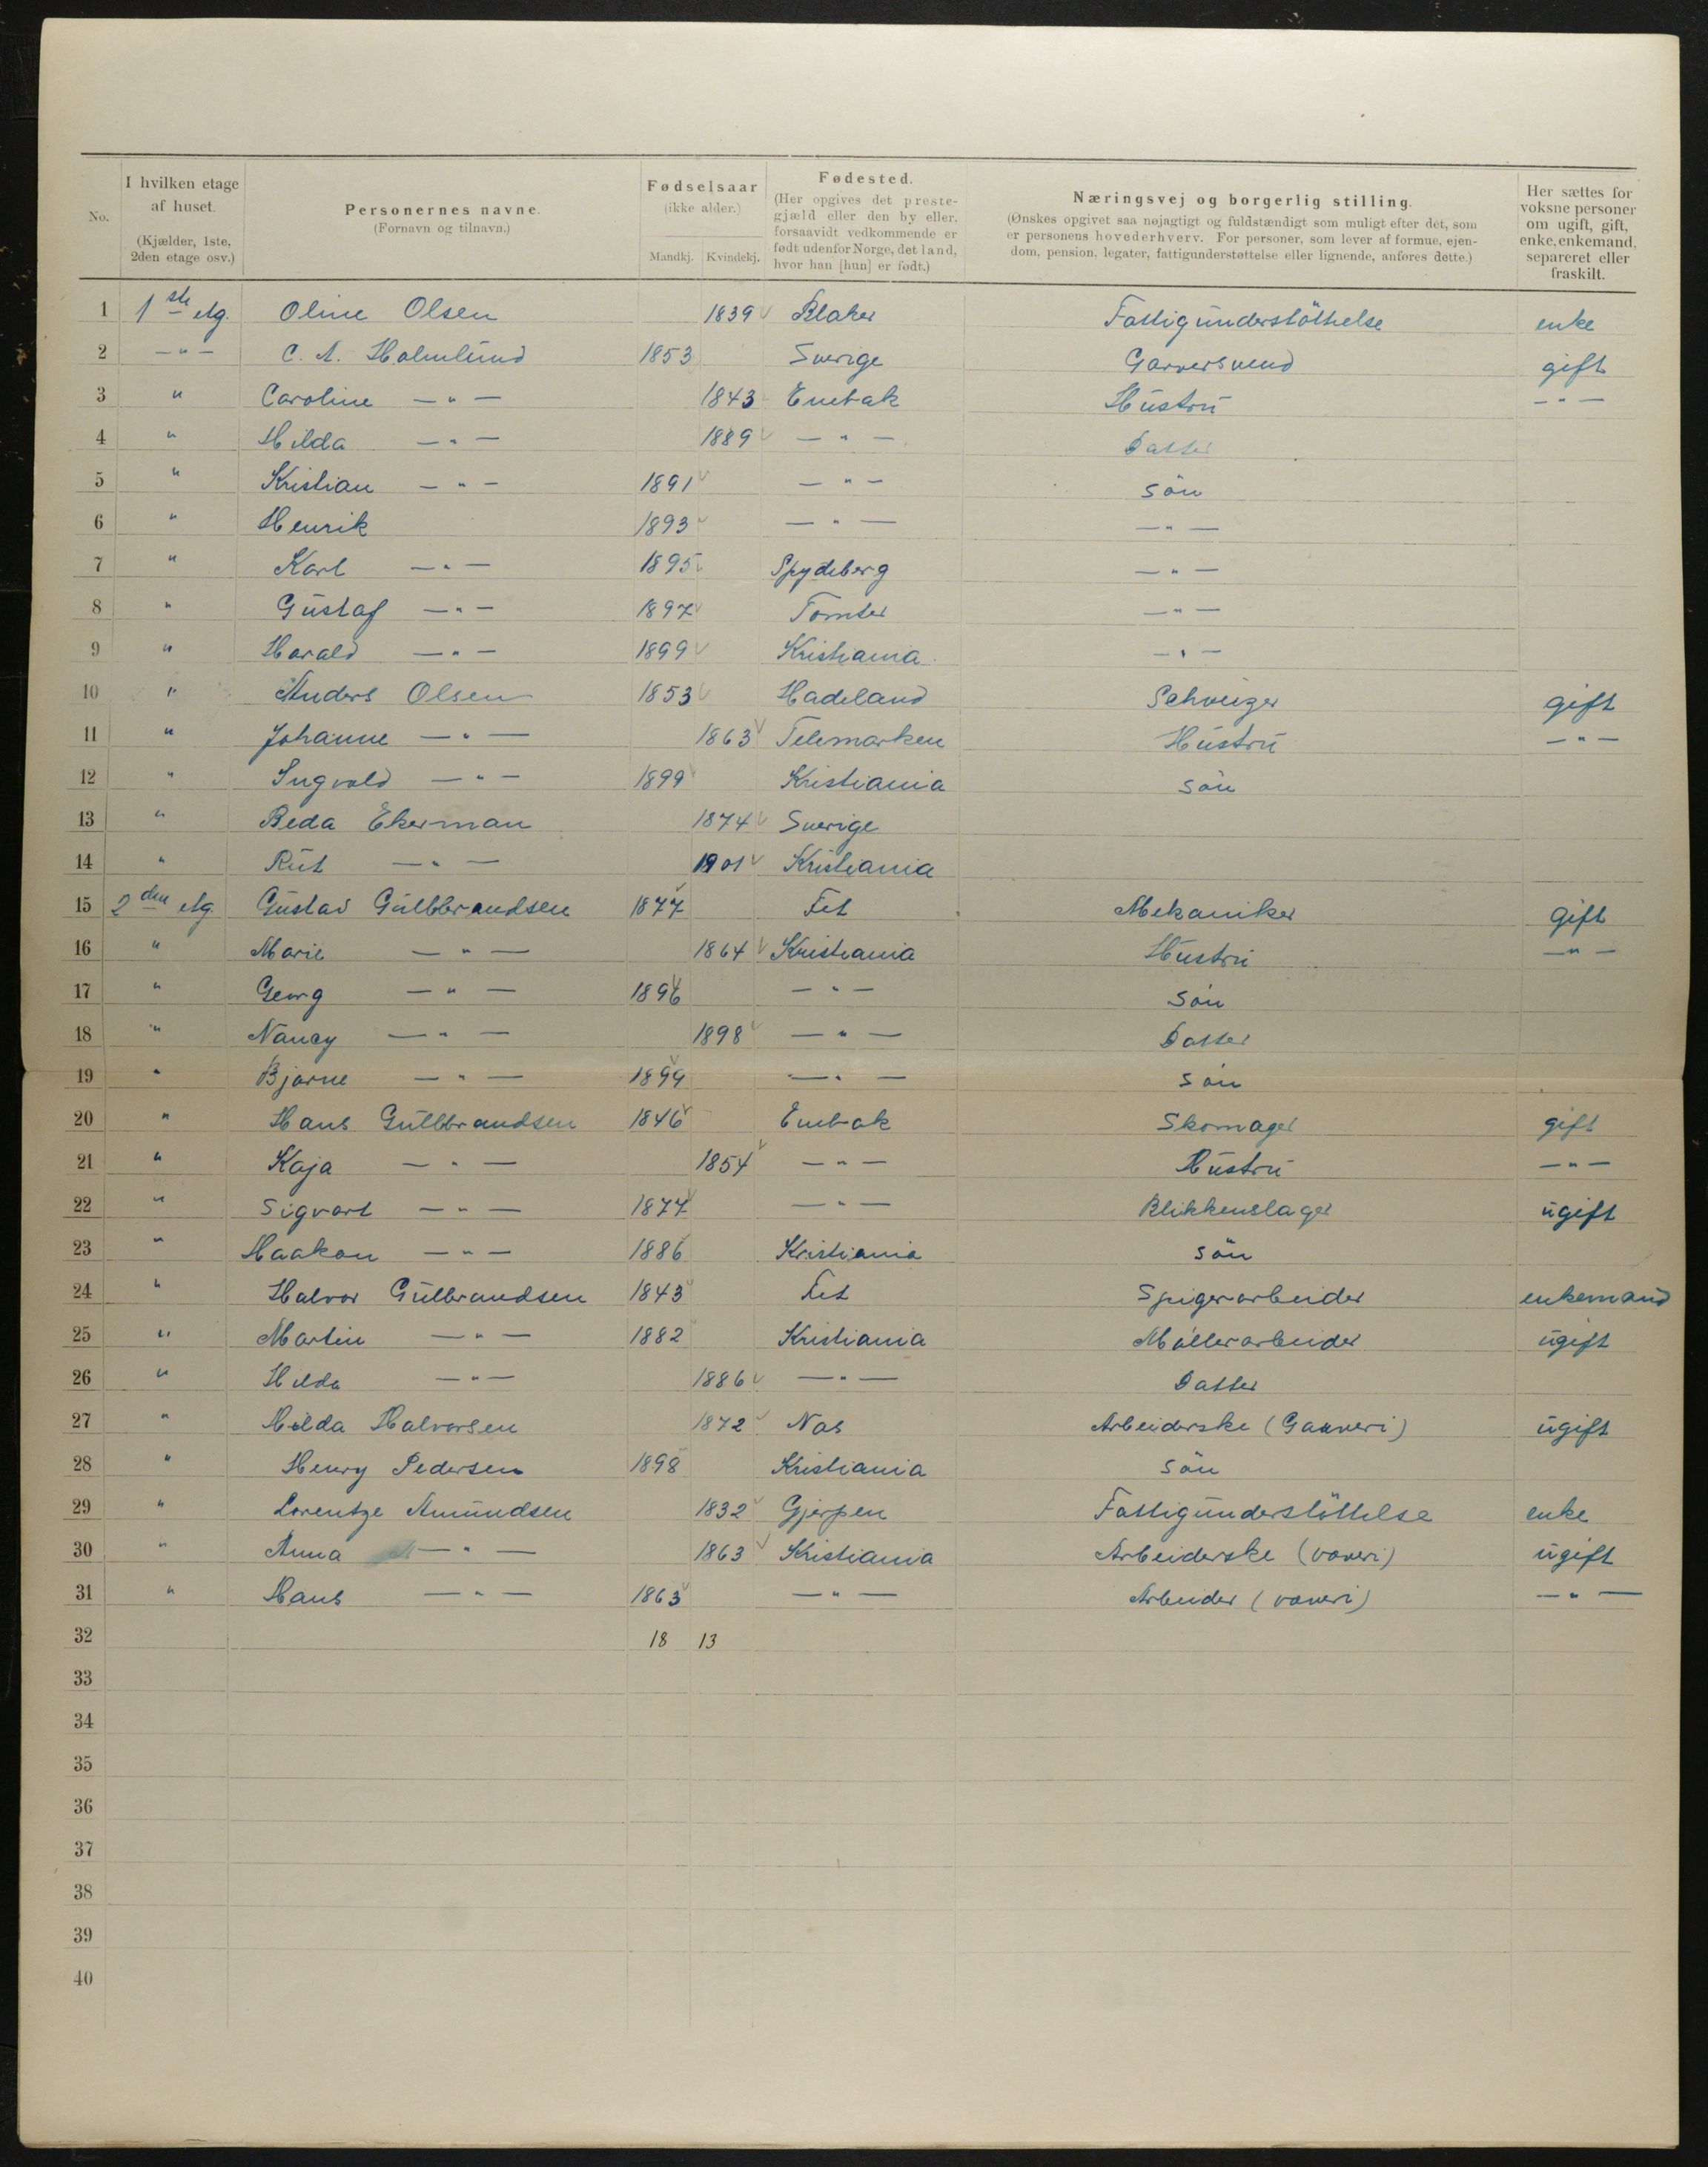 No.
I hvilken etage af huset. (Kjælder, 1ste, 2den etage osv.)
Personernes navne. (Fornavn og tilnavn.)
Fødselsaar (ikke alder.) Mandkj. Kvindekj.
Fødested. (Her opgives det prestegjæld eller den by eller, forsaavidt vedkommende er født udenfor Norge, det land, hvor han [hun] er født.)
Næringsvej og borgerlig stilling. (Ønskes opgivet saa nøjagtigt og fuldstændigt som muligt efter det, som er personens hovederhverv. For personer, som lever af formue, ejendom, pension, legater, fattigunderstøttelse eller lignende, anføres dette.)
Her sættes for voksne personer om ugift, gift, enke, enkemand, separeret eller fraskilt.
1 1ste etg. Oline Olsen 1839 Blaker Fattigunderstöthelse enke
2 — " — C. A. Holmlund 1853 Sverige Garversvend gift
3 " Caroline — " — 1843 Enebak Hustru — " —
4 " Hilda — " — 1889 — " — Datter
5 " Kristian — " — 1891 — " — Sön
6 " Henrik 1893 — " — — " —
7 " Karl — " — 1895 Spydeberg — " —
8 " Gustaf — " — 1897 Tomter — " —
9 " Harald — " — 1899 Kristiania — " —
10 " Anders Olsen 1853 Hadeland Schveizer gift
11 " Johanne — " — 1863 Telemarken Hustru — " —
12 " Ingvald — " — 1899 Kristiania sön
13 " Beda Ekerman 1874 Sverige
14 " Rut — " — 1901 Kristiania
15 2den etg. Gustav Gulbbrandsen 1877 Fet Mekaniker gift
16 " Marie — " — 1864 Kristiania Hustru — " —
17 " Georg — " — 1896 — " — Sön
18 " Nancy — " — 1898 — " — Datter
19 " Bjarne — " — 1899 — " — sön
20 " Hans Gulbbrandsen 1846 Enebak Skomager gift
21 " Kaja — " — 1854 — " — Hustru — " —
22 " Sigvart — " — 1877 — " — Blikkenslager ugift
23 " Haakon — " — 1886 Kristiania sön
24 " Halvor Gulbrandsen 1843 Fet Spigerarbeider enkemand
25 " Martin — " — 1882 Kristiania Møllerarbeider ugift
26 " Hilda — " — 1886 — " — Datter
27 " Hilda Halvorsen 1872 Nas Arbeiderske (Garveri) ugift
28 " Henry Pedersen 1898 Kristiania sön
29 " Lorentze Amundsen 1832 Gjerpen Fattigunderstöttelse enke
30 " Anna — " — 1863 Kristiania Arbeiderske (væveri) ugift
31 " Hans — " — 1863 — " — Arbeider (væveri) — " —
32 18 13
33
34
35
36
37
38
39
40